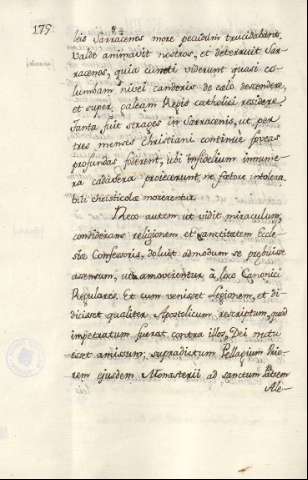 175.
leis Sarracenos more pecudum trucidabant.
Valde animavit nostros, et deterruit Sar-
racenos, quia cuncti viderunt quasi co-
lumbam nivei candoris de celo descendere,
et super galeam Regis catholici residere.
Tanta fuit strages in Sarracenis, ut per
tres menses Christiani continue foveas
profundas foderent, ubi infidelium innume-
ra cadavera proiecerunt, ne foetore intolera-
bili christicolae morerentur.
Rex autem ut vidit miraculum,
considerans religionem et sanctitatem Eccle-
siae Confessoris, doluit admodum se prebuisse
assensum, ut amoverentur à loco Canonici
Regulares. Et cum venisset Legionem, et di-
dicisset qualiter Apostolicum rescriptum, quod
impetratum fuerat contra illos, Dei nutu
esset amissum; supradictum Pellagium Prio-
rem ejusdem Monasterii ad sanctum Patrem
Ale-